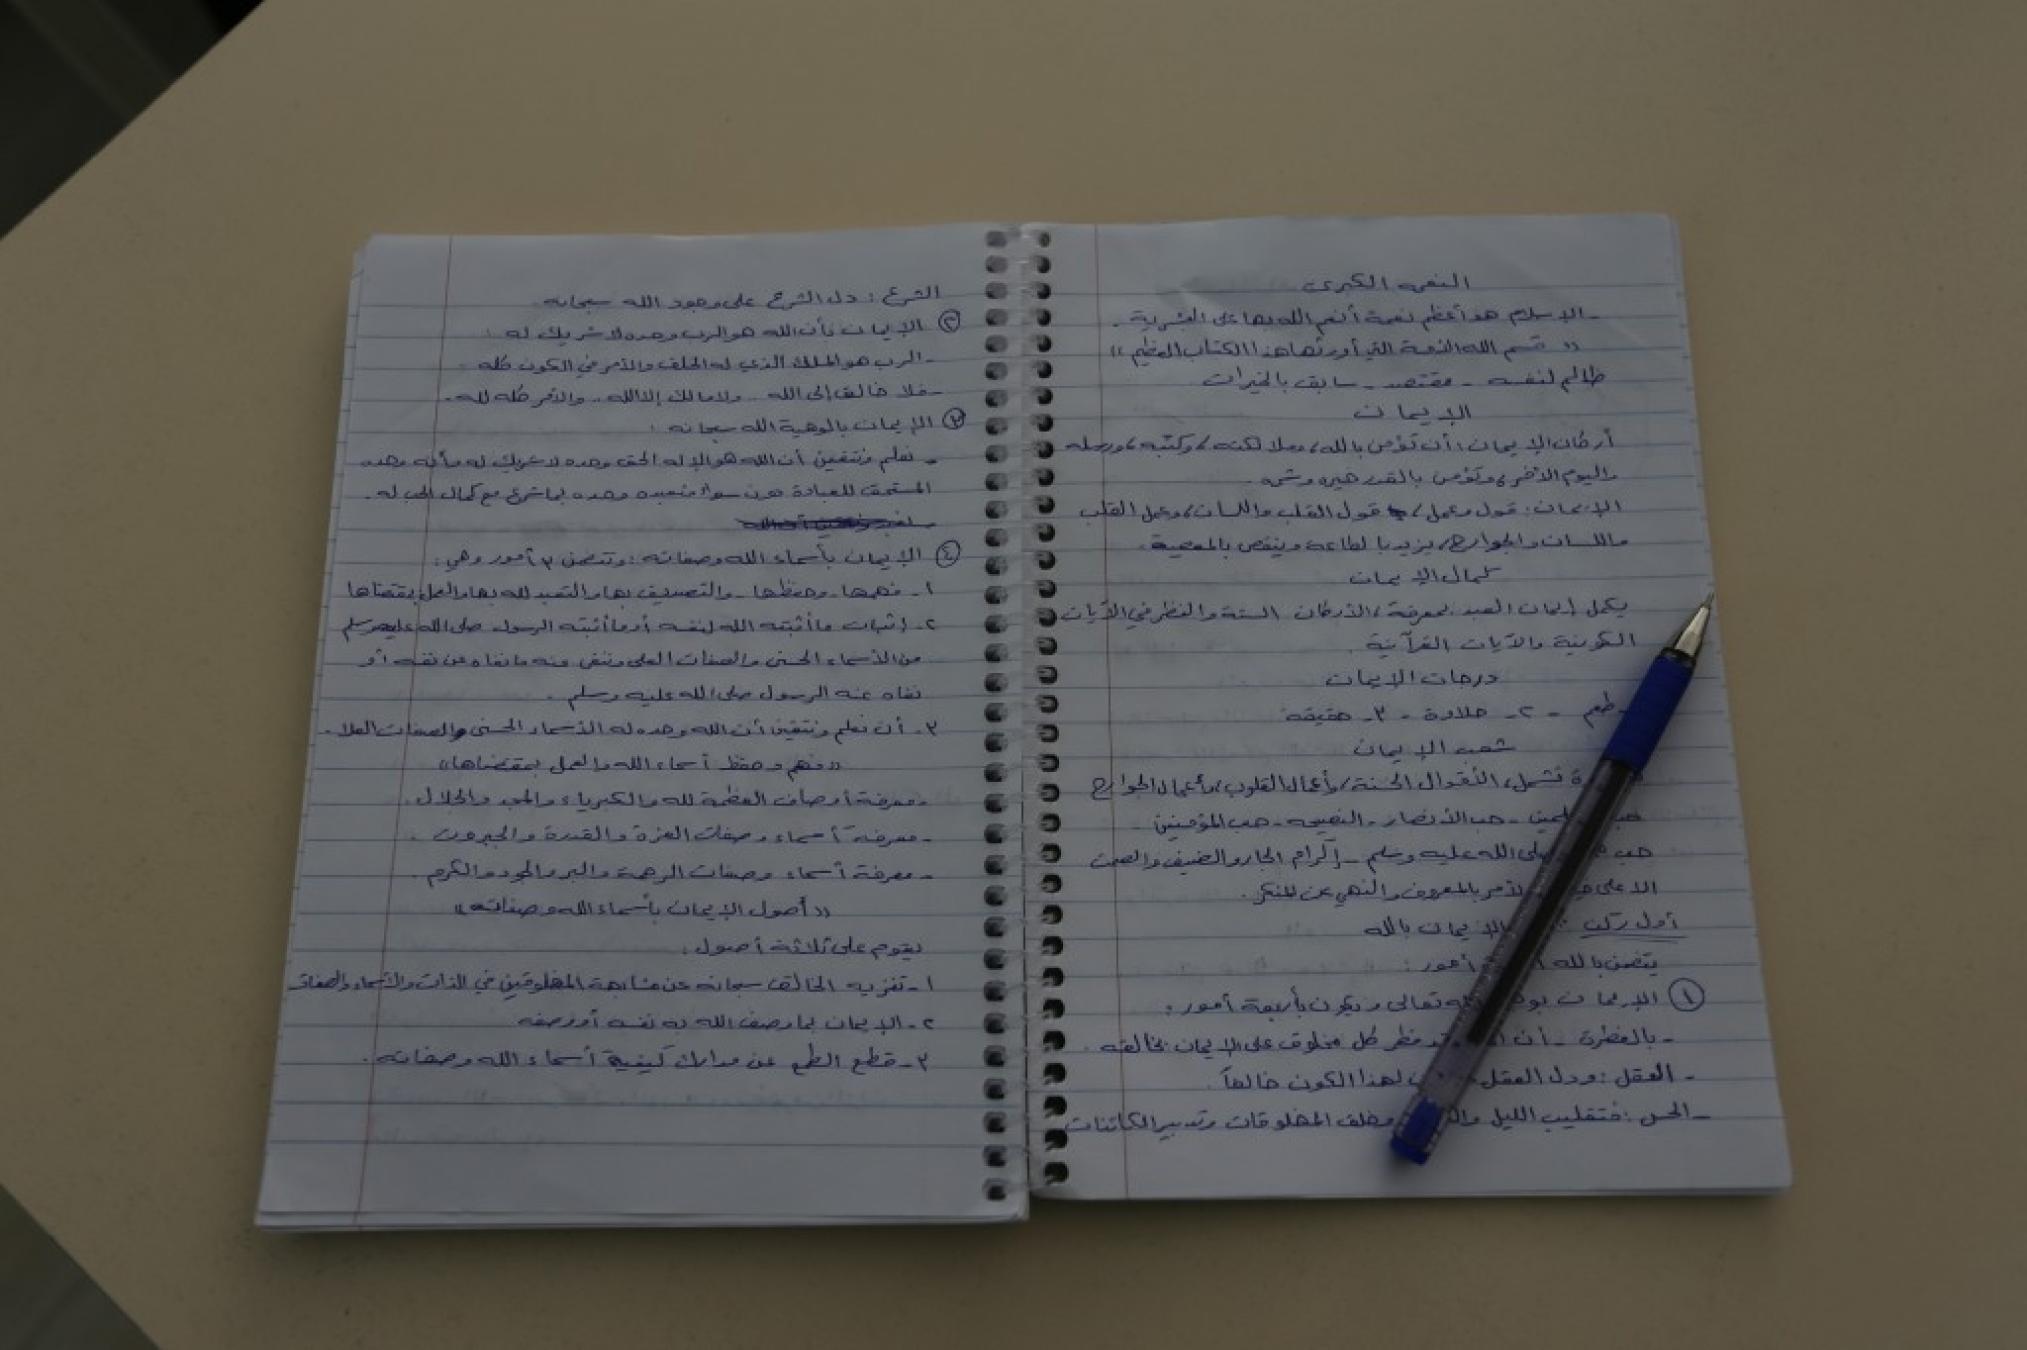 النعمه الكبرى
- الإسلام هو أعظم نعمة أنعم الله بها على البشرية .
" قسم الله النعمة التي أورثها هذا الكتاب العظيم "
ظالم لنفسه - مقتصد - سابق بالخيرات
الإيمان
أركان الإيمان : أن تؤمن بالله، وملائكته، وكتبه، ورسله
واليوم الآخر، وتؤمن بالقدر خيره وشره .
الإيمان : قول وعمل، قول القلب واللسان، وعمل القلب
واللسان والجوارح، يزيد بالطاعة وينقص بالمعصية .
كمال الإيمان
يكمل إيمان العبد بمعرفة، الأركان الستة والنظر في الآيات
الكونية والآيات القرآنية .
درجات الإيمان
طعم - ٢- حلاوة - ٣- حقيقة
شعب الإيمان
تشمل، الأقوال الحسنة، وأعمال القلوب، وأعمال الجوارح
حب - حب الأنصار - النصيحه - حب المؤمنين -
حب صلى الله عليه وسلم - إكرام الجار والضيف والصمت
الا على الأمر بالمعروف والنهي عن المنكر .
أول ركن : الإيمان بالله
يتضمن بالله أمور :
① الإيمان الله تعالى ويكون بأربعة أمور :
- بالفطرة - أن قد فطر كل مخلوق على الإيمان بخالقه .
- العقل : ودل العقل لهذا الكون خالقاً .
- الحس : فتقليب الليل وخلق المخلوقات وتدبير الكائنات
الشرع : دل الشرع على وجود الله سبحانه .
② الإيمان بأن الله هو الرب وحده لا شريك له :
- الرب هو الملك الذي له الخلق والأمر في الكون كله
- فلا خالق إلى الله .. ولا مالك إلا الله .. والأمر كله لله .
③ الإيمان بالوهية الله سبحانه :
- نعلم ونتيقن أن الله هو الإله الحق وحده لا شريك له وأنه وحده
المستحق للعبادة دون سواه فنعبده وحده بما شرع مع كمال الحب له .
④ الإيمان بأسماء الله وصفاته : وتتضمن ٣ أمور وهي :
١- فهمها - وحفظها - والتصديق بها والتعبد لله بها والعمل بمقتضاها
٢- إثبات ما أثبته الله لنفسه أو ما أثبته الرسول صلى الله عليه وسلم
من الأسماء الحسنى والصفات العلى وننفي عنه ما نفاه عن نفسه أو
نفاه عنه الرسول صلى الله عليه وسلم .
٣- أن نعلم ونتيقن أن الله وحده له الأسماء الحسنى والصفات العلا .
" فهم وحفظ أسماء الله والعمل بمقتضاها "
- معرفة أوصاف العظمة لله والكبرياء والمجد والجلال .
- معرفة أسماء وصفات العزة والقدرة والجبروت .
- معرفة أسماء وصفات الرحمة والبر والجود والكرم .
" أصول الإيمان بأسماء الله وصفاته "
يقوم على ثلاثة أصول :
١- تنزيه الخالق سبحانه عن مشابهة المخلوقين في الذات والأسماء والصفات
٢- الإيمان بما وصف الله به نفسه أو وصفه
٣- قطع الطمع عن كيفية أسماء الله وصفاته .